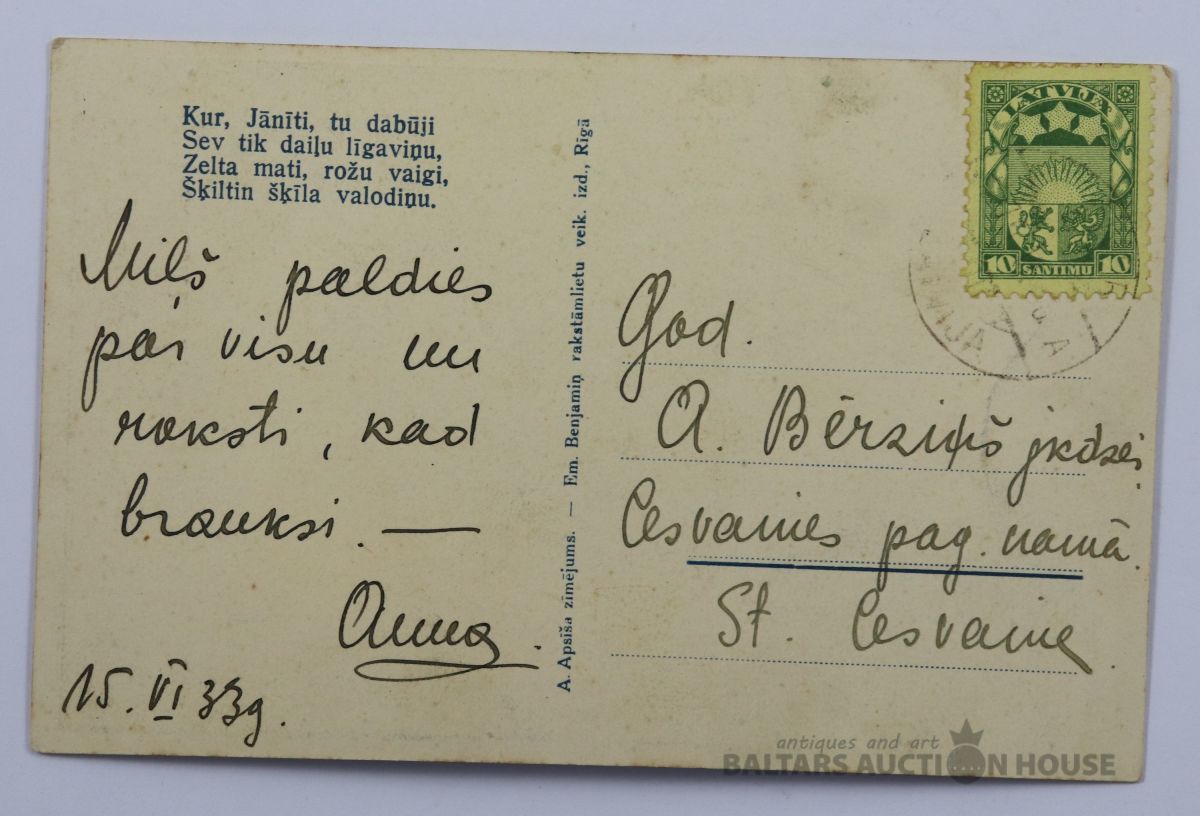 Kur, Jānīti, tu dabūji
Sev tik daiļu līgaviņu,
Zelta mati, rožu vaigi,
Šķiltin šķīla valodiņu.
Miļš paldies
par visu un
raksti, kad
brauksi. —
Anna.
15. VI 33g.
A. Apsīša zīmējums. — Em. Benjamiņ rakstāmlietu veik. izd., Rīgā
LATVIJA
10 SANTIMU 10
God.
A. Bērziņš jkdzei
Cesvaines pag. namā.
St. Cesvaine.
antiques and art
BALTARS AUCTION HOUSE